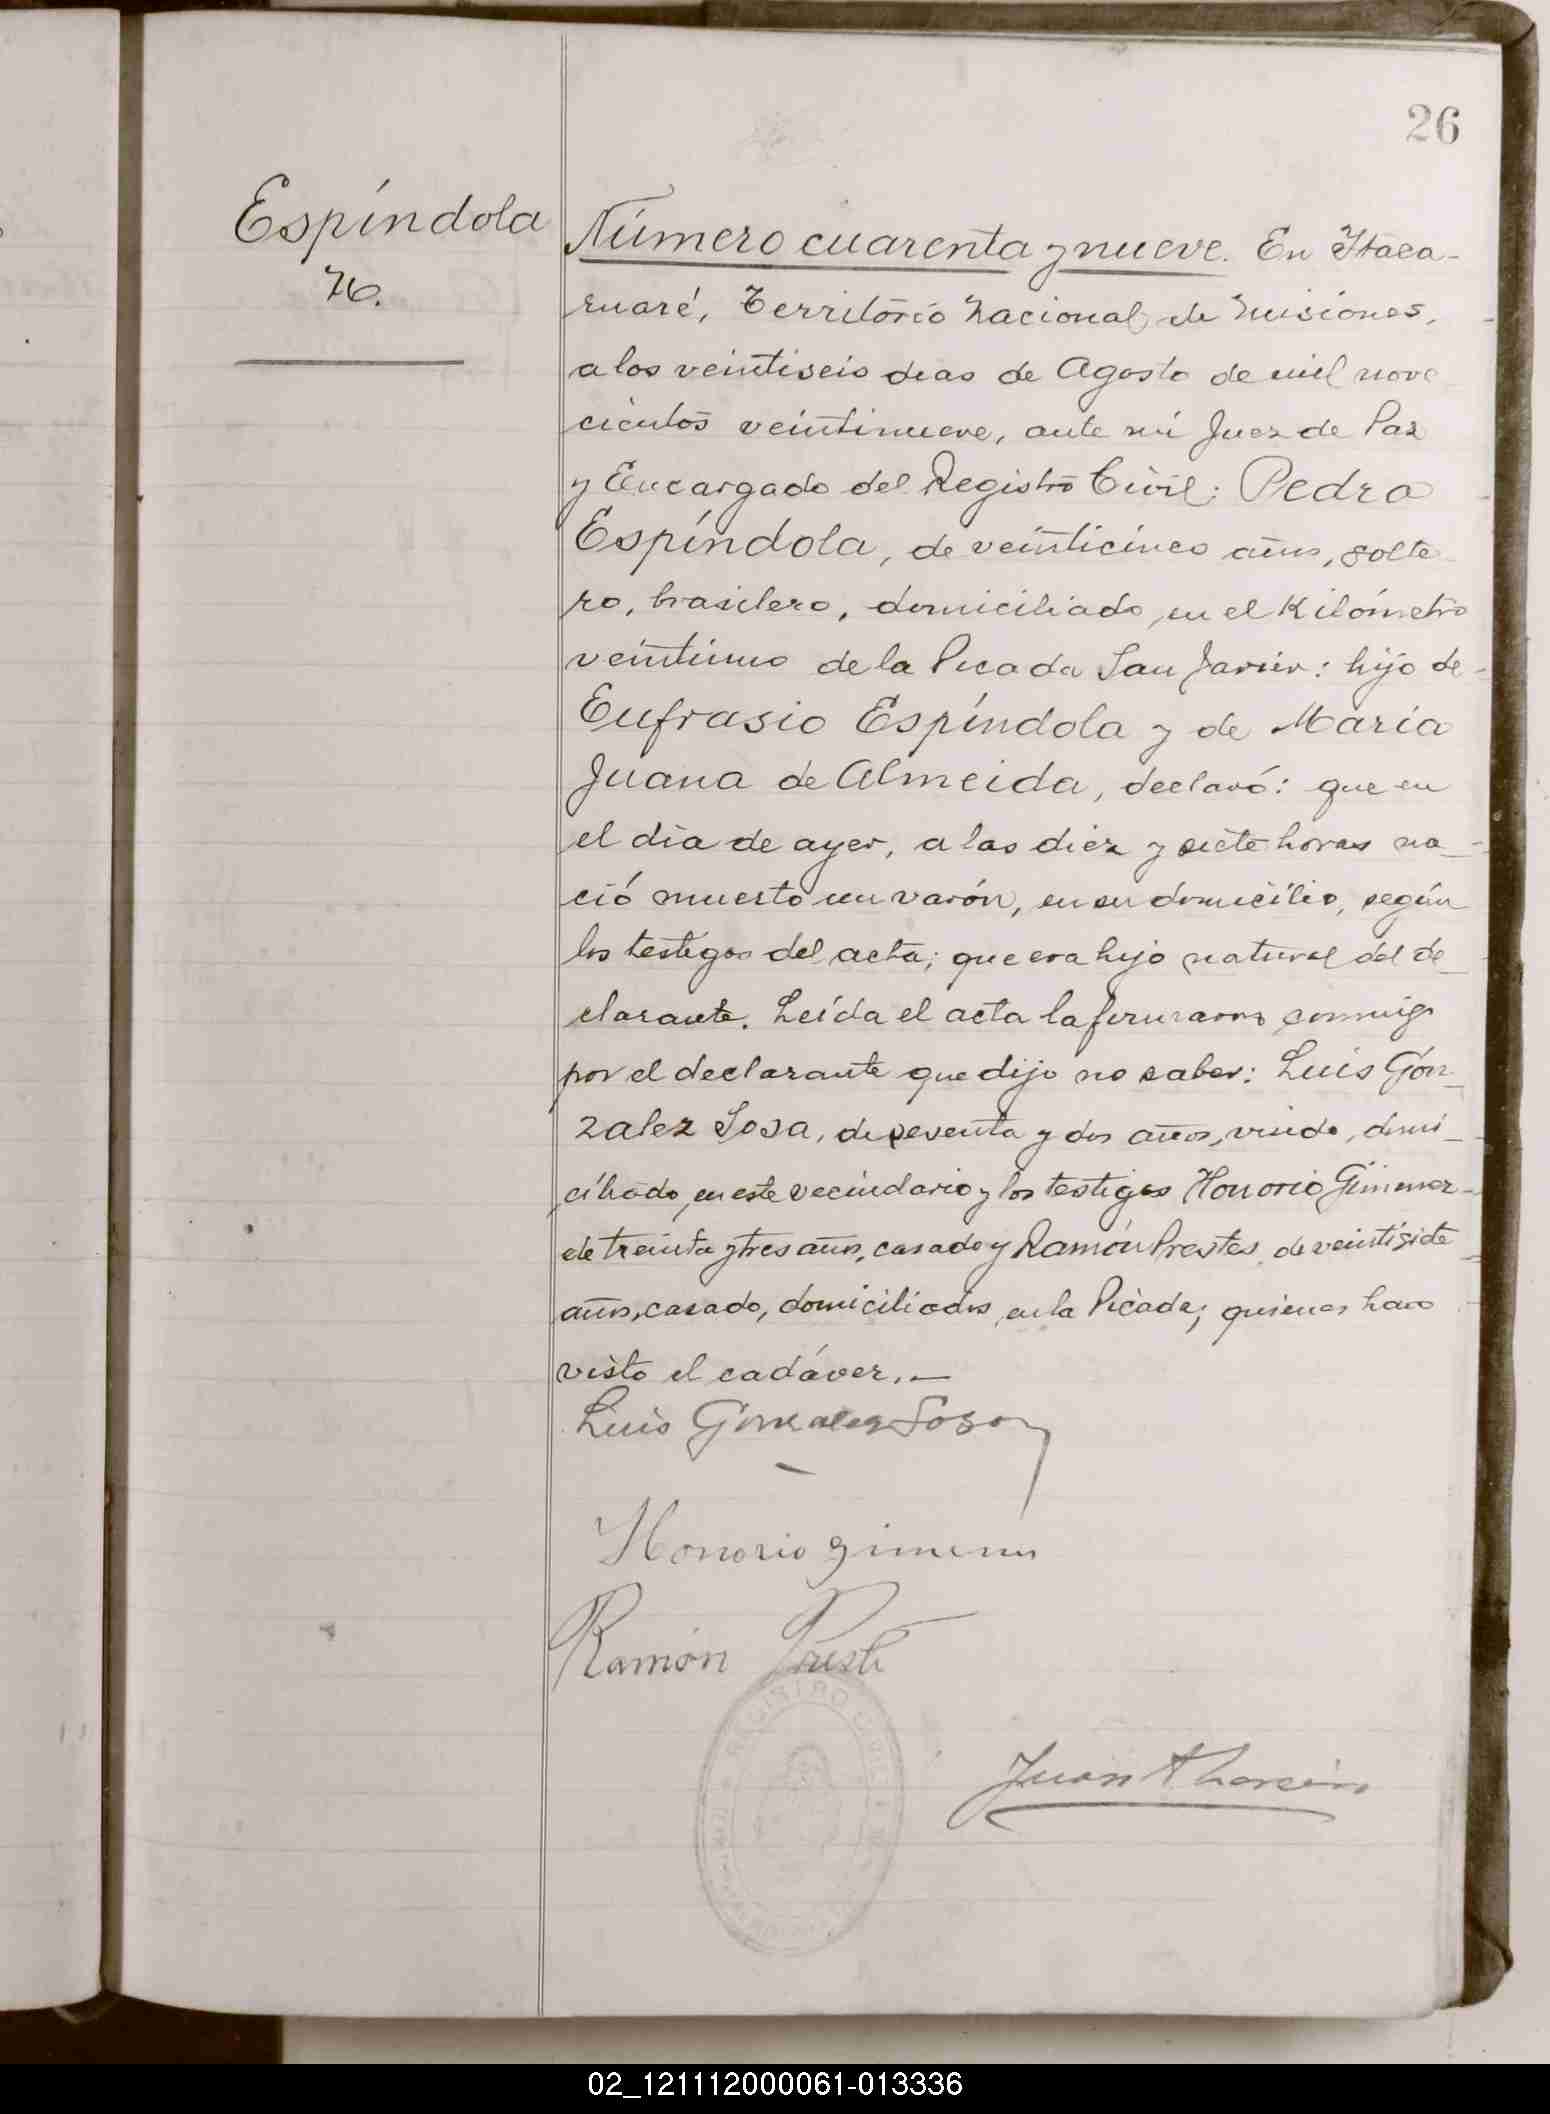 26
Espíndola
76.
Número cuarenta y nueve. En Itaca-
ruaré, Territorio Nacional de Misiones,
a los veintiseis dias de Agosto de mil nove
cientos veintinueve, ante mi Juez de Paz
y Encargado del Registro Civil: Pedro
Espíndola, de veinticinco años, solte
ro, brasilero, domiciliado, en el Kilómetro
veintiuno de la Picada San Javier: hijo de
Eufrasio Espíndola y de María
Juana de Almeida, declaró: que en
el día de ayer, a las diez y siete horas na-
ció muerto un varón, en su domicilio, según
los testigos del acta; que era hijo natural del de
clarante. Leída el acta la firmaron conmigo
por el declarante que dijo no saber: Luis Gón
zalez Sosa, de sesenta y dos años, viudo, domi-
ciliado, en este vecindario y los testigos Honorio Gimenez
de treinta y tres años, casado y Ramón Prestes, de veintisiete
años, casado, domiciliados, en la Picada; quienes han
visto el cadáver.—
Luis Gonzalez Sosa
Honorio Gimenez
Ramón Preste
REGISTRO CIVIL
Juan A
02_121112000061-013336